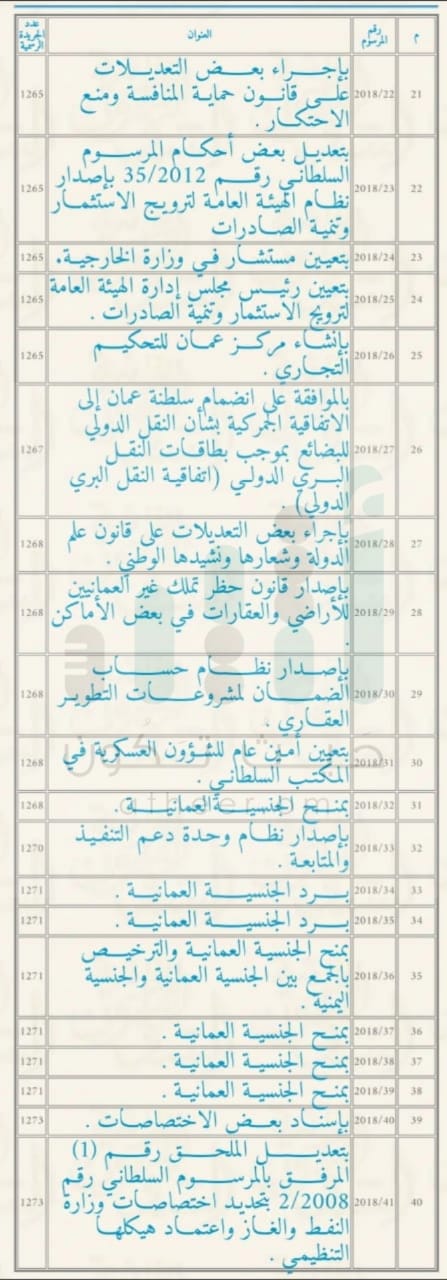 م رقم المرسوم العنوان عدد الجريدة الرسمية
21 2018/22 بإجراء بعض التعديلات 1265
على قانون حماية المنافسة ومنع
الاحتكار .
22 2018/23 بتعديل بعض أحكام المرسوم 1265
السلطاني رقم 35/2012 بإصدار
نظام الهيئة العامة لترويج الاستثمار
وتنمية الصادرات
23 2018/24 بتعيين مستشار في وزارة الخارجية. 1265
24 2018/25 بتعيين رئيس مجلس إدارة الهيئة العامة 1265
لترويج الاستثمار وتنمية الصادرات .
25 2018/26 بإنشاء مركز عمان للتحكيم 1265
التجاري .
26 2018/27 بالموافقة على انضمام سلطنة عمان إلى 1267
الاتفاقية الجمركية بشأن النقل الدولي
للبضائع بموجب بطاقات النقل
البري الدولي (اتفاقية النقل البري
الدولي)
27 2018/28 بإجراء بعض التعديلات على قانون علم 1268
الدولة وشعارها ونشيدها الوطني .
28 2018/29 بإصدار قانون حظر تملك غير العمانيين 1268
للأراضي والعقارات في بعض الأماكن
.
29 2018/30 بإصدار نظام حساب 1268
الضمان لمشروعات التطوير
العقاري .
30 2018/31 بتعيين أمين عام للشؤون العسكرية في 1268
المكتب السلطاني .
31 2018/32 بمنح الجنسية العمانية . 1268
32 2018/33 بإصدار نظام وحدة دعم التنفيذ 1270
والمتابعة .
33 2018/34 برد الجنسية العمانية . 1271
34 2018/35 برد الجنسية العمانية . 1271
35 2018/36 بمنح الجنسية العمانية والترخيص 1271
بالجمع بين الجنسية العمانية والجنسية
اليمنية .
36 2018/37 بمنح الجنسية العمانية . 1271
37 2018/38 بمنح الجنسية العمانية . 1271
38 2018/39 بمنح الجنسية العمانية . 1271
39 2018/40 بإسناد بعض الاختصاصات . 1273
40 2018/41 بتعديل الملحق رقم (1) 1273
المرفق بالمرسوم السلطاني رقم
2/2008 بتحديد اختصاصات وزارة
النفط والغاز واعتماد هيكلها
التنظيمي .
أثير
حيث نكون
atheer.om